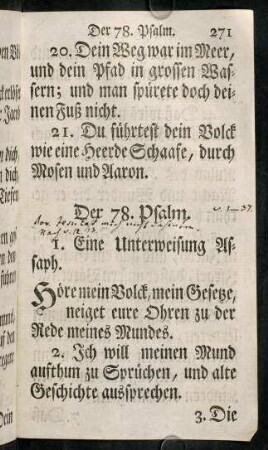 Der 78. Psalm. 271
20. Dein Weg war im Meer,
und dein Pfad in grossen Was-
sern; und man spürete doch dei-
nen Fuß nicht.
21. Du führtest dein Volck
wie eine Heerde Schaafe, durch
Mosen und Aaron.
Der 78. Psalm. v. 1-37.
1. Eine Unterweisung As-
saph.
Höre mein Volck, mein Gesetze,
neiget eure Ohren zu der
Rede meines Mundes.
2. Ich will meinen Mund
aufthun zu Sprüchen, und alte
Geschichte aussprechen.
3. Die